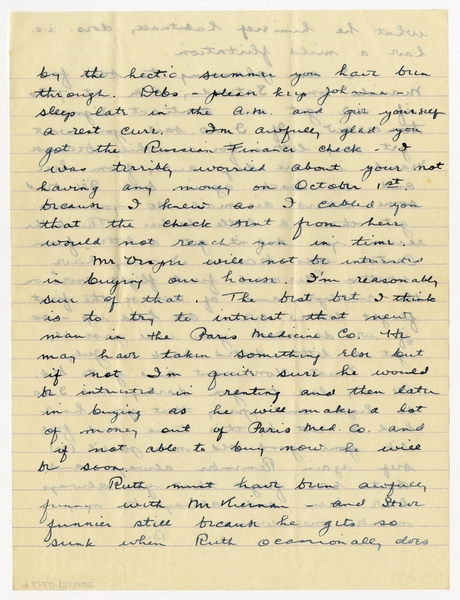 by the hectic summer you have been
through. Debs - please keep Johnina -
sleep late in the A.M. and give yourself
a rest cure. I'm awfully glad you
got the Russian Finance check - I
was terribly worried about your not
having any money on October 1st
because I knew as I cabled you
that the check sent from here
would not reach you in time.
Mr Draper will not be interested
in buying our house. I'm reasonably
sure of that. The best bet I think
is to try to interest that new
man in the Paris Medicine Co. He
may have taken something else but
if not I'm quite sure he would
be interested in renting and then later
in buying as he will make a lot
of money out of Paris Med. Co. and
if not able to buy now he will
be soon.
Ruth must have been awfully
funny with Mr Kiernan - and
funnier still because he gets so
sunk when Ruth ocassionally does